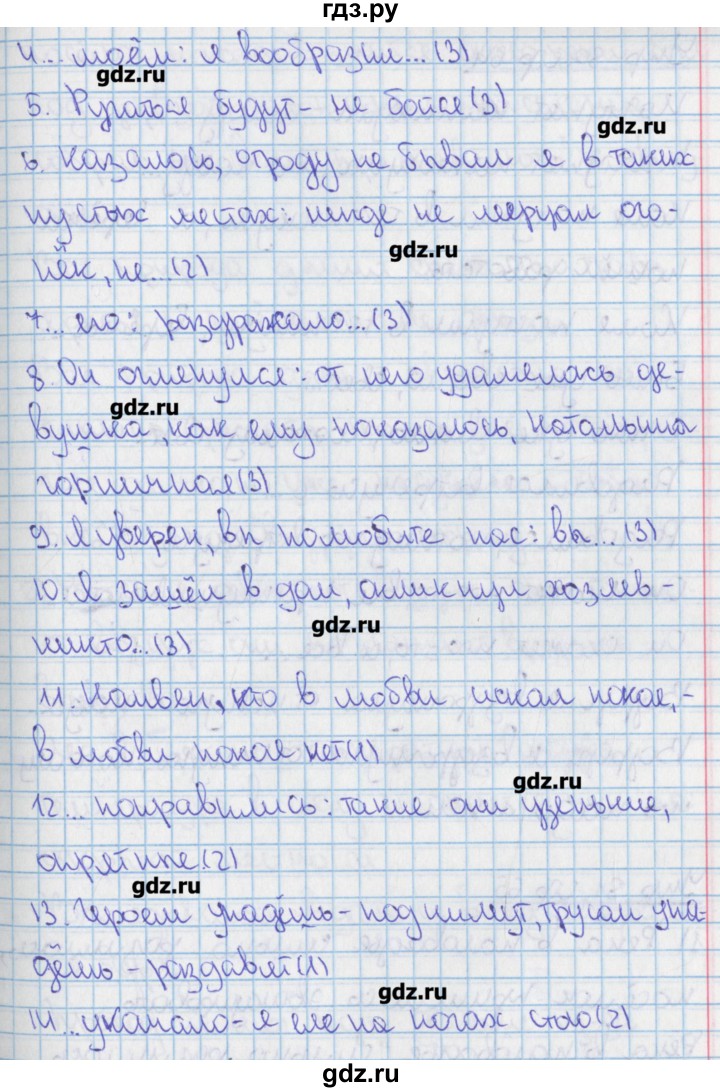 гдз.ру
4... моём: я вообразил... (3)
gdz.ru
5. Ругаться будут - не бойся (3)
gdz.ru
6. Казалось, отроду не бывал я в таких
пустых местах: нигде не мерцал ого-
gdz.ru
нёк, не... (2)
7... его: раздражало... (3)
8. Он оглянулся: от него удалялась де-
gdz.ru
вушка, как ему показалось, Натальина
горничная (3)
9. Я уверен, вы полюбите нас: вы... (3)
10. Я зашёл в дом, окликнул хозяев-
gdz.ru
никто... (3)
11. Наивен, кто в любви искал покоя,-
в любви покоя нет (1)
gdz.ru
12... понравились: такие они узенькие,
опрятные. (2)
gdz.ru
13. Героем упадёшь - поднимут, трусом упа-
дёшь - раздавят (1)
gdz.ru
14... укачало - я еле на ногах стою (2)
gdz.ru